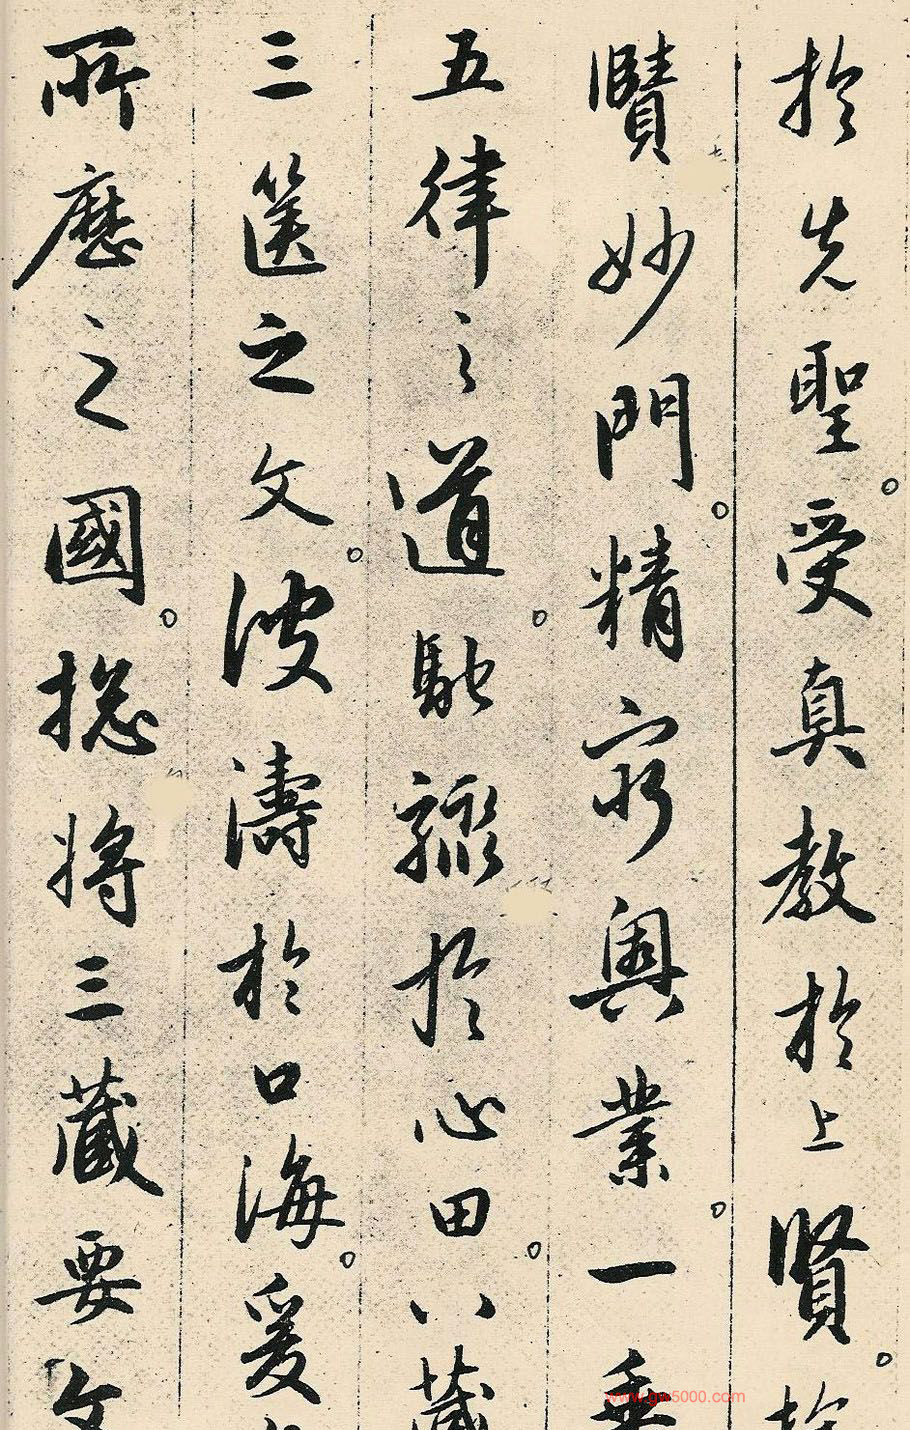 於先聖受真教於上賢
賾妙門精窮奧業一乘
五律之道馳驟於心田八藏
三篋之文波濤於口海爰
所歷之國揔將三藏要文
www.gw5000.com